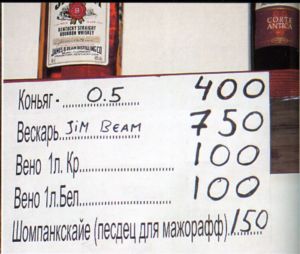 KENTUCKY STRAIGHT
BOURBON WHISKEY
JAMES B. BEAM DISTILLING CO.
CORTE
ANTICA
Коньяг - 0.5 400
Вескарь JiM BEAM 750
Вено 1л. Кр 100
Вено 1л.Бел 100
Шомпанскайе (песдец для мажорафф) 150